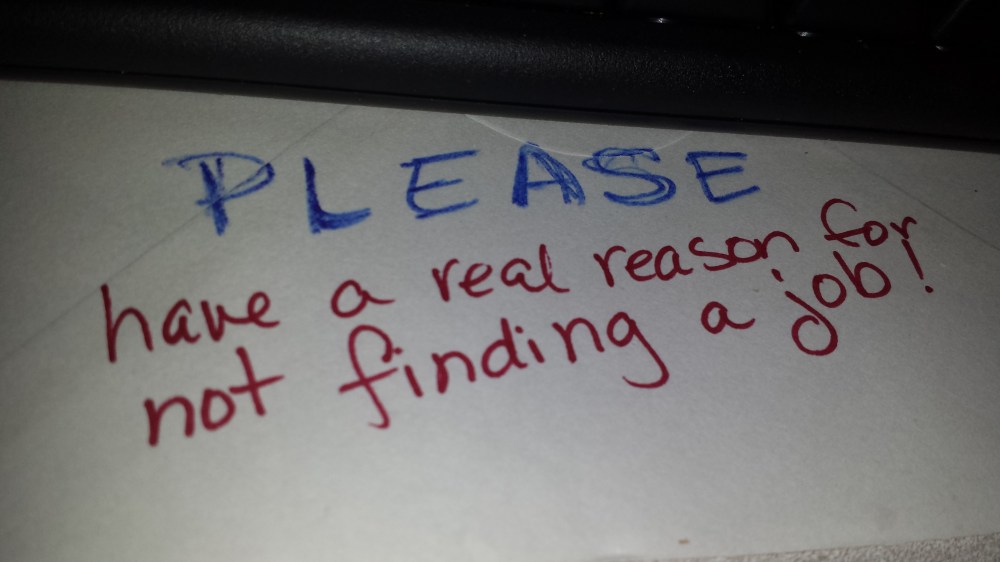 PLEASE
have a real reason for
not finding a job!